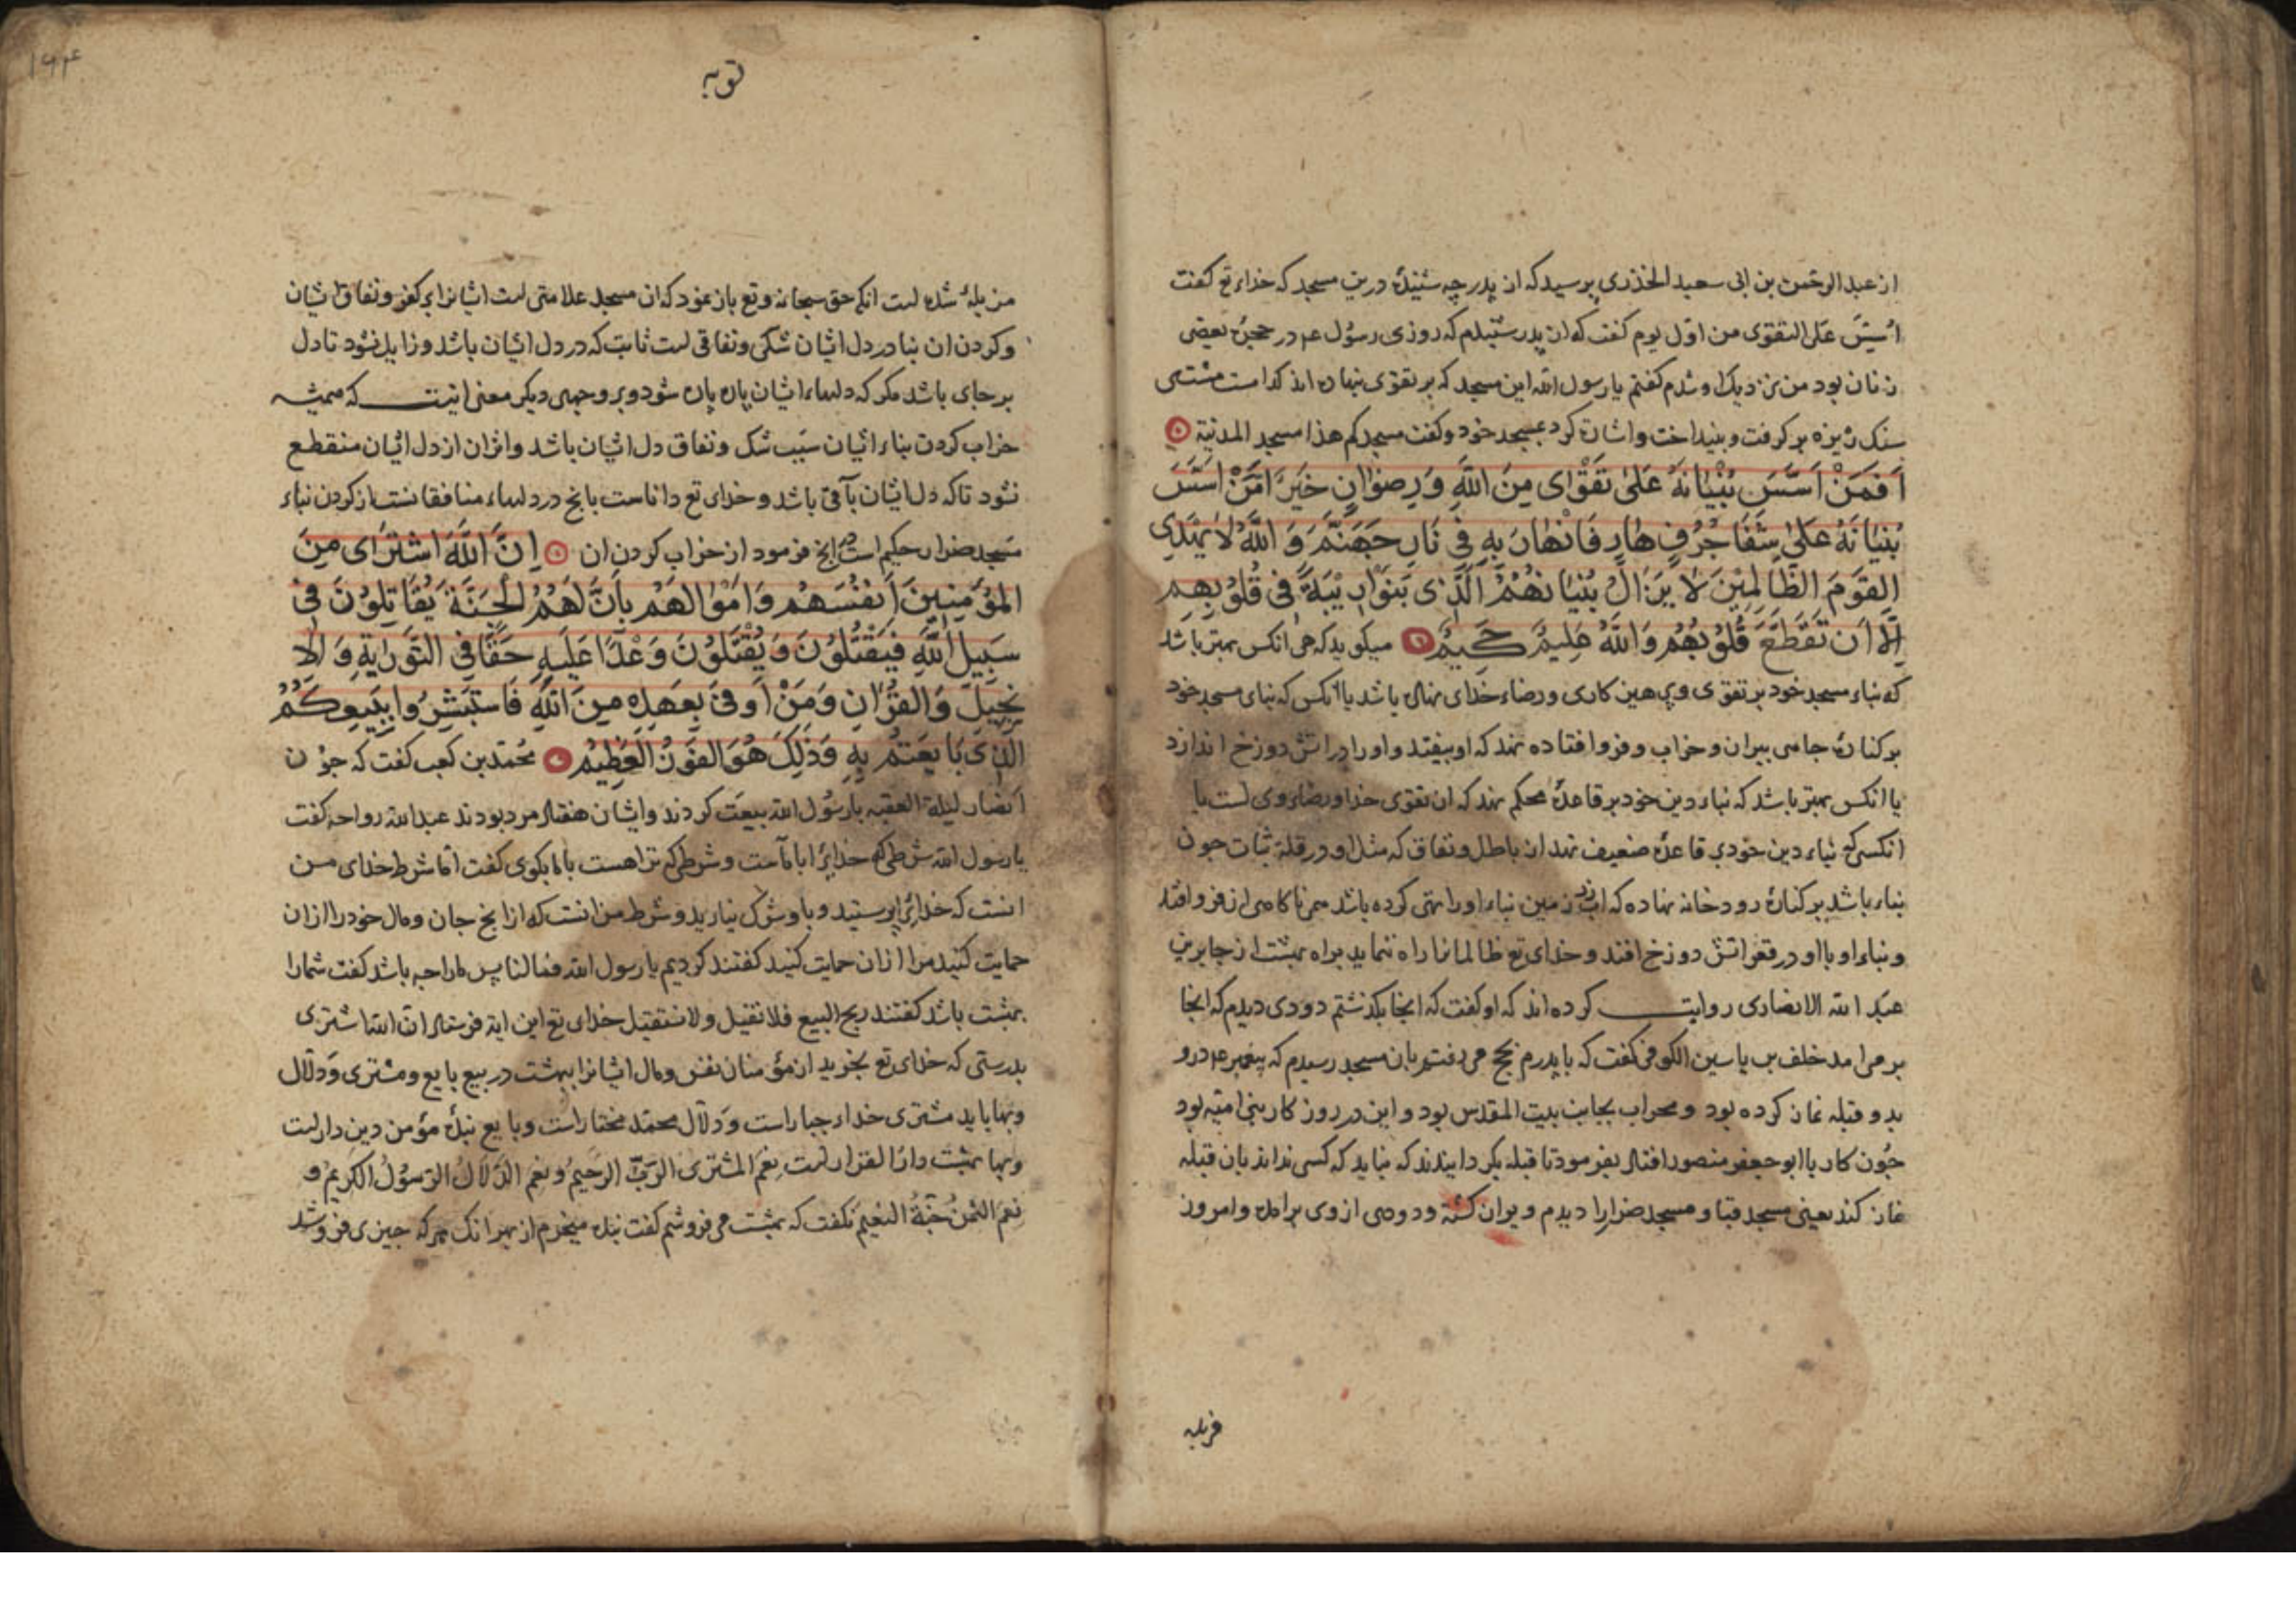 از عبدالرحمن بن ابی سعید الخذری پرسید که از پدر چه شنیدهٔ درین مسجد که خداء تع کفت
اُسِّسَ عَلَی التقوی من اوّل یوم کفت که از پدر شنیدم که روزی رسُول عم در حجرهٔ بعضی
زنان بود من نزدیک او شدم کفتم یا رسول الله این مسجد که بر تقوی نهاده اند کدامست مشتی
سنک ریزه بر کرفت و بینداخت و اشارة کرد بمسجد خود و کفت مسجدکم هذا مسجد المدنیة
اَفَمَنْ اَسَّسَ بُنْیَانَهُ عَلَی تَقْوَای مِنَ اللَّهِ وَرِضْوَانٍ خَیْرٌ اَمَّنْ اَسَّسَ
بُنْیَانَهُ عَلَی شَفَا جُرُفٍ هَارٍ فَانْهَارَ بِهِ فِی نَارِ جَهَنَّمَ وَ اللَّهُ لَا یَهْدِی
القَوْمَ الظَّالِمِیْنَ لَا یَزَالُ بُنْیَانُهُمُ الَّذِی بَنَوْا رِیْبَةً فِی قُلُوْبِهِمِ
اِلَّا اَن تَقَطَّعَ قُلُوْبُهُم وَاللَّهُ عَلِیْمٌ حَکِیْمٌ میکوید که هر انکس بهتر باشد
که بناء مسجد خود بر تقوی و پرهیزکاری و رضاء خدای نهاده باشد یا انکس که بنای مسجد خود
بر کنارهٔ جامی بیران و خراب و فرو افتاده نهد که او بیفتد و او را در اتش دوزخ اندازد
یا انکس بهتر باشد که بناء دین خود بر قاعدهٔ محکم نهد که ان تقوی خدا و رضاء وی است یا
انکسی که بناء دین خود بر قاعدهٔ ضعیف نهد از باطل و نفاق که مثل او در قلة ثبات جون
بناء باشد بر کنارهٔ رودخانه نهاده که اب زیر زمین بناء او را تهی کرده باشد هم ناکاهی از فرو افتد
و بناء او با او در قعر اتش دوزخ افتد و خدای تع ظالمانرا راه ننماید براه بهشت از جابر بن
عبد الله الانصاری روایت کرده اند که او کفت که ایخا بکذشتم دودی دیدم که ایخا
بر می امد خلف بن یاسین الکوفی کفت که با پدرم بحج می رفتم بان مسجد رسیدم که پیغمبر عم درو
بدو قبله نماز کرده بود و محراب بجانب بیت المقدس بود و این در روزکار بنی امیه بود
جُون کار با ابو جعفر منصور افتاد بفرمود تا قبله بکردانیدند که نباید که کسی نداند بان قبله
نماز کند یعنی مسجد قبا و مسجد ضرارا دیدم ویران کشته و دودی از وی بر امده و امروز
مزبله
توبه
۱۶۴
مزبلهٔ شده است انکه حق سبحانه و تع باز نمود که ان مسجد علامتی است ایشانرا بر کفر و نفاق ایشان
و کردن ان بنا در دل ایشان شکی و نفاقی است ثابت که در دل ایشان باشد و زایل نشود تا دل
بر جای باشد مکر که دلهاء ایشان پاره پاره شود و بر وجهی دیکر معنی انیست که همیشه
خراب کردن بناء ایشان سبب شک و نفاق دل ایشان باشد و اثر ان از دل ایشان منقطع
نشود تا که دل ایشان باقی باشد و خدای تع داناست بانج در دلهاء منافقانست از کردن بناء
مسجد ضرار حکیم است در انج فرمود از خراب کردن ان اِنَّ اللَّهَ اشْتَرَای مِنَ
المُؤْمِنِینَ اَنْفُسَهُم وَ اَمْوَالَهُم بِاَنَّ لَهُمُ الْجَنَّةَ یُقَاتِلُوْنَ فِی
سَبِیْلِ اللَّهِ فَیَقْتُلُوْنَ وَ یُقْتَلُوْنَ وَعْدًا عَلَیْهِ حَقًّا فِی التَّوْرَایةِ وَ الاْ
نْجِیْلِ وَالْقُرْآنِ وَمَنْ اَوْفَی بِعَهْدِهِ مِنَ اللَّهِ فَاسْتَبْشِرُوا بِبَیْعِکُمُ
الَّذِی بَایَعْتُم بِهِ وَ ذَلِکَ هُوَ الفَوْزُ الْعَظِیْمُ محمّد بن کعب کفت که جوُن
انصار لیلة العقبه با رسُول الله بیعت کردند و ایشان هفتاد مرد بودند عبد الله رواحه کفت
یا رسول الله شرطی که خدایرا با ماست و شرطی که ترا هست با ما بکوی کفت اما شرط خدای من
انست که خدایرا بپرستید و با وی شرک نیارید و شرط من انست که از انج جان و مال خود را از ان
حمایت کنید مرا از ان حمایت کنید کفتند کردیم یا رسول الله فما لنا پس ما را چه باشد کفت شما را
بهشت باشد کفتند ربح البیع فلا نقیل و لا نستقیل خدای تع این ایة فرستاد ان الله اشتری
بدرستی که خدای تع بخرید از مؤمنان نفس و مال ایشانرا ببهشت در بیع بایع و مشتری و دلّال
و بها باید مشتری خداء جبار است و دلّال محمّد مختار است و بایع بندهٔ مؤمن دین دار است
و بها بهشت دارُ القرار است نِعْمَ المشتری الرَبُّ الرَحیمُ و نعم الدَّلالُ الرَسُولُ الکریمُ و
نعم الثمنُ جَنّةُ النعیم نکفت که بهشت می فروشم کفت بنده میخرم از بهر انک هر که جیزی فروشد